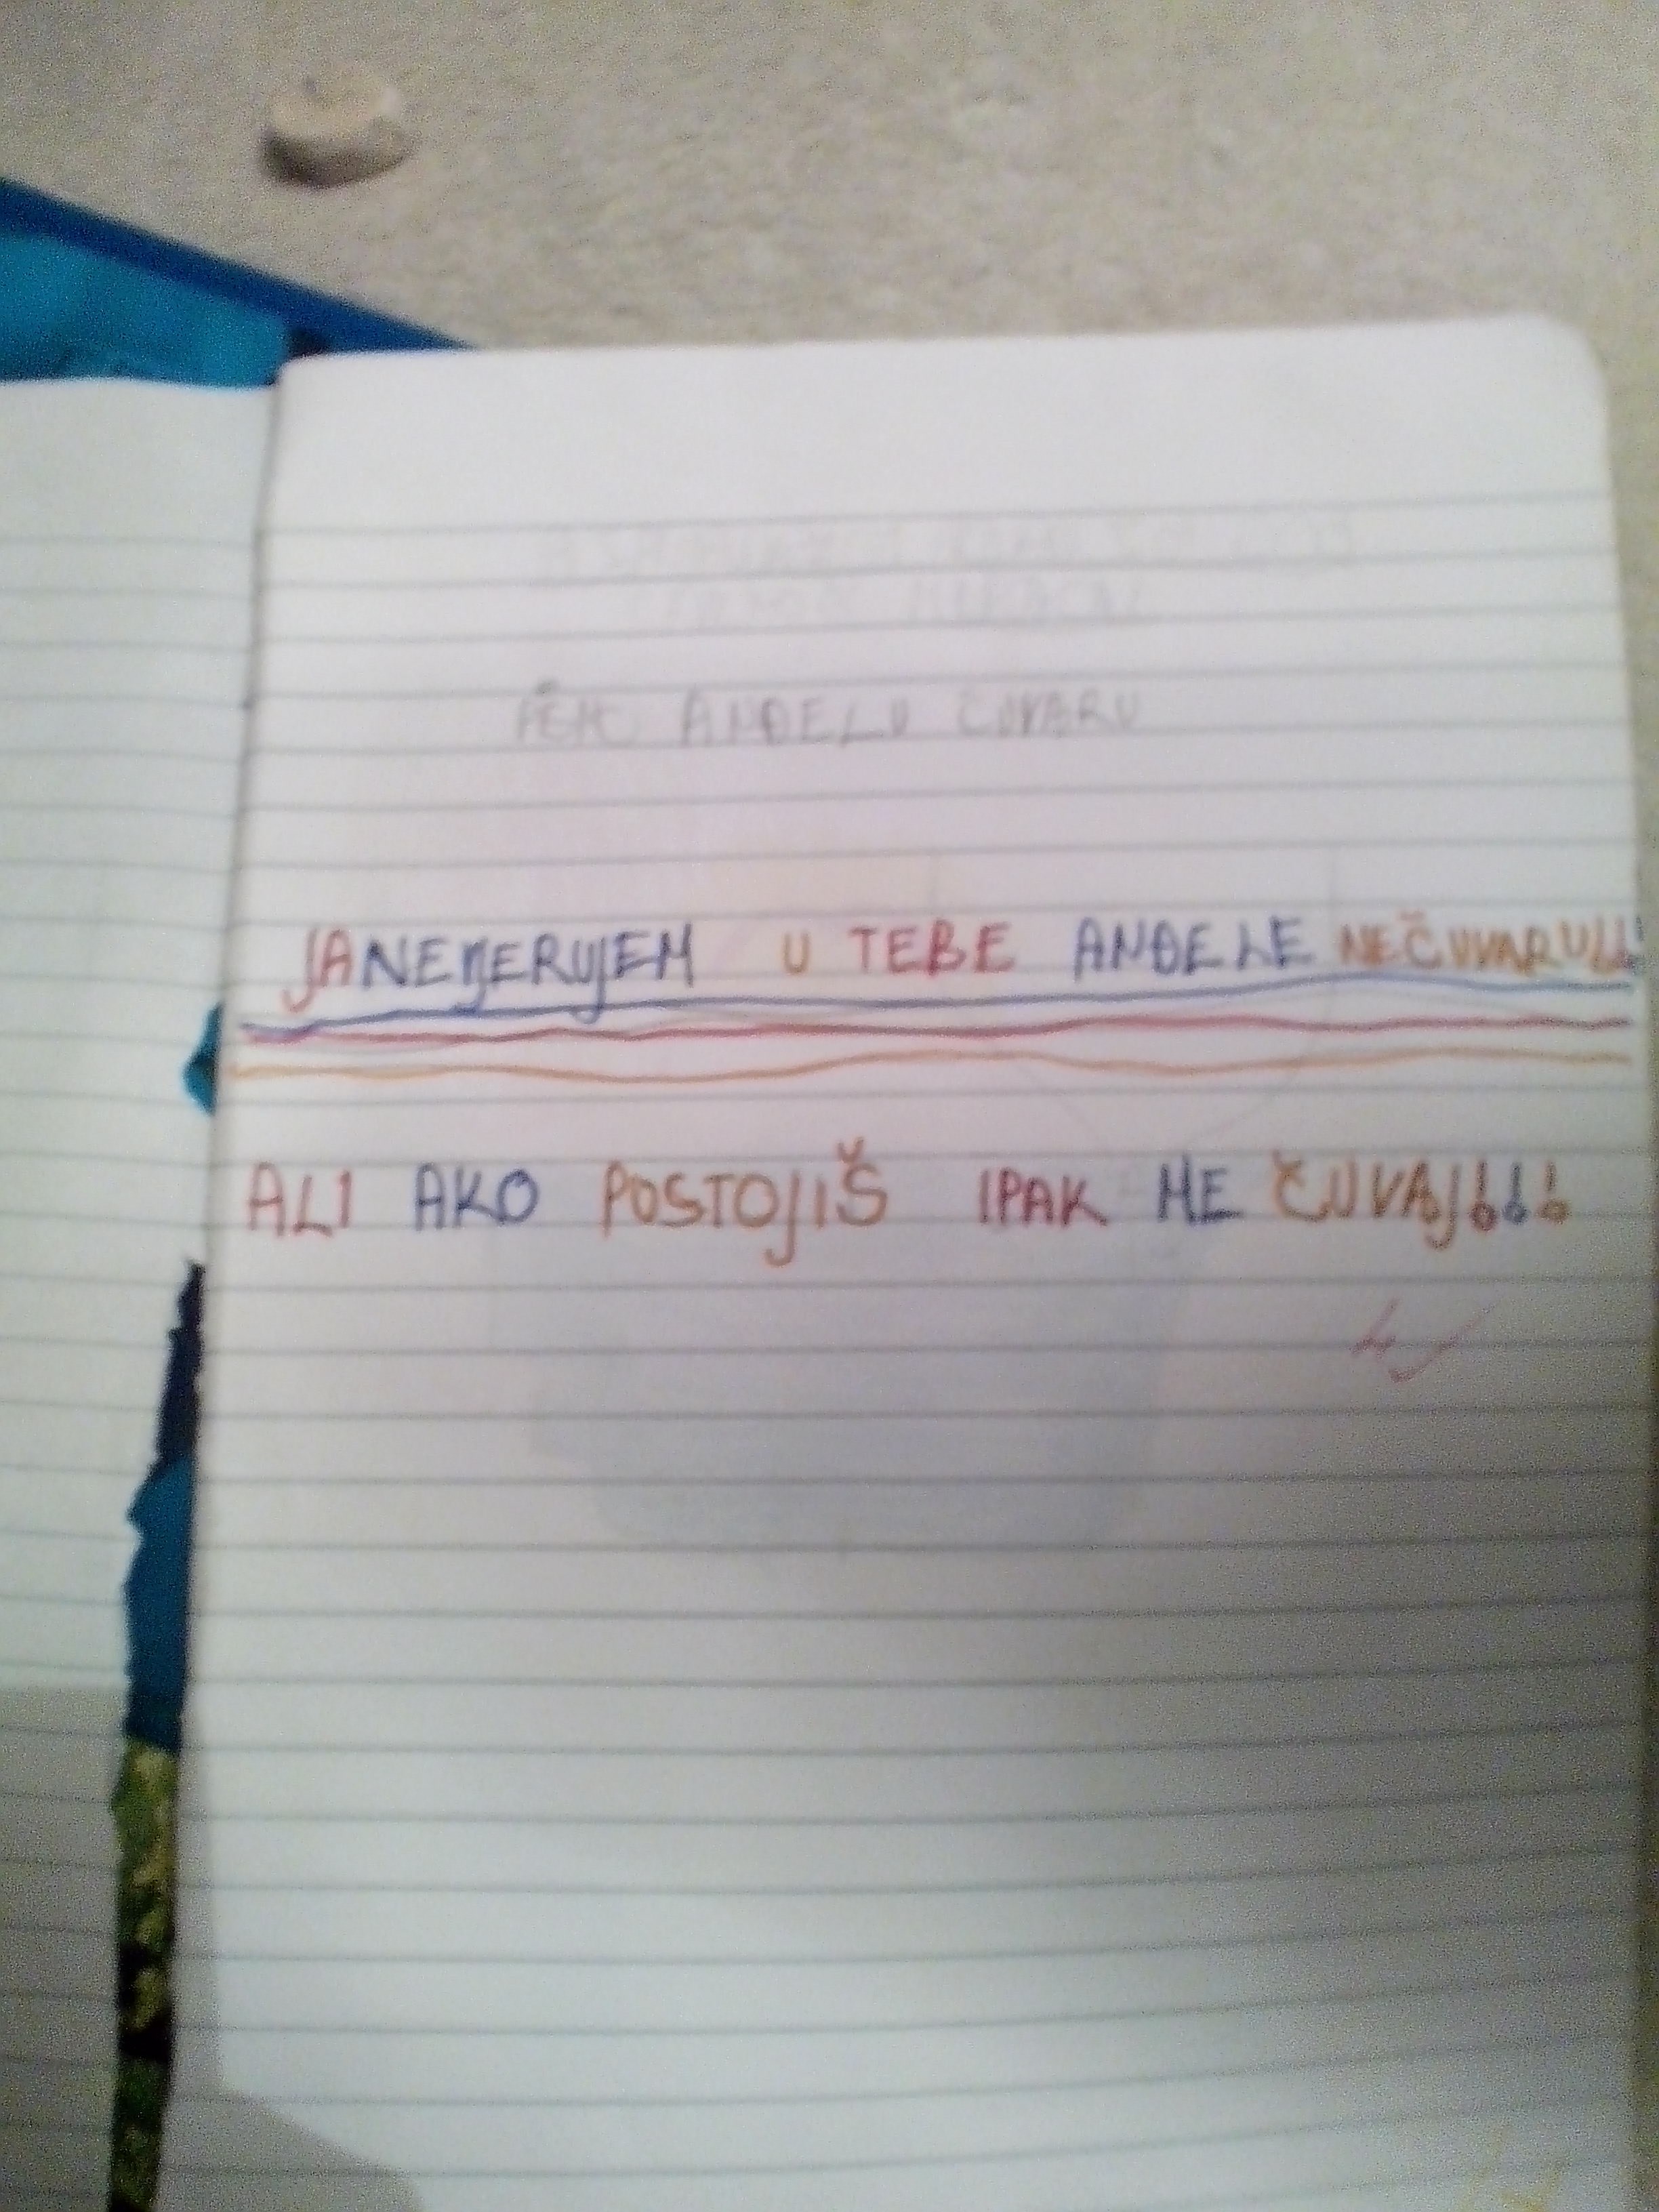 ANĐELU ČUVARU
JA NE VJERUJEM U TEBE ANĐELE NEČUVARU!!!
ALI AKO POSTOJIŠ IPAK ME ČUVAJ!!!